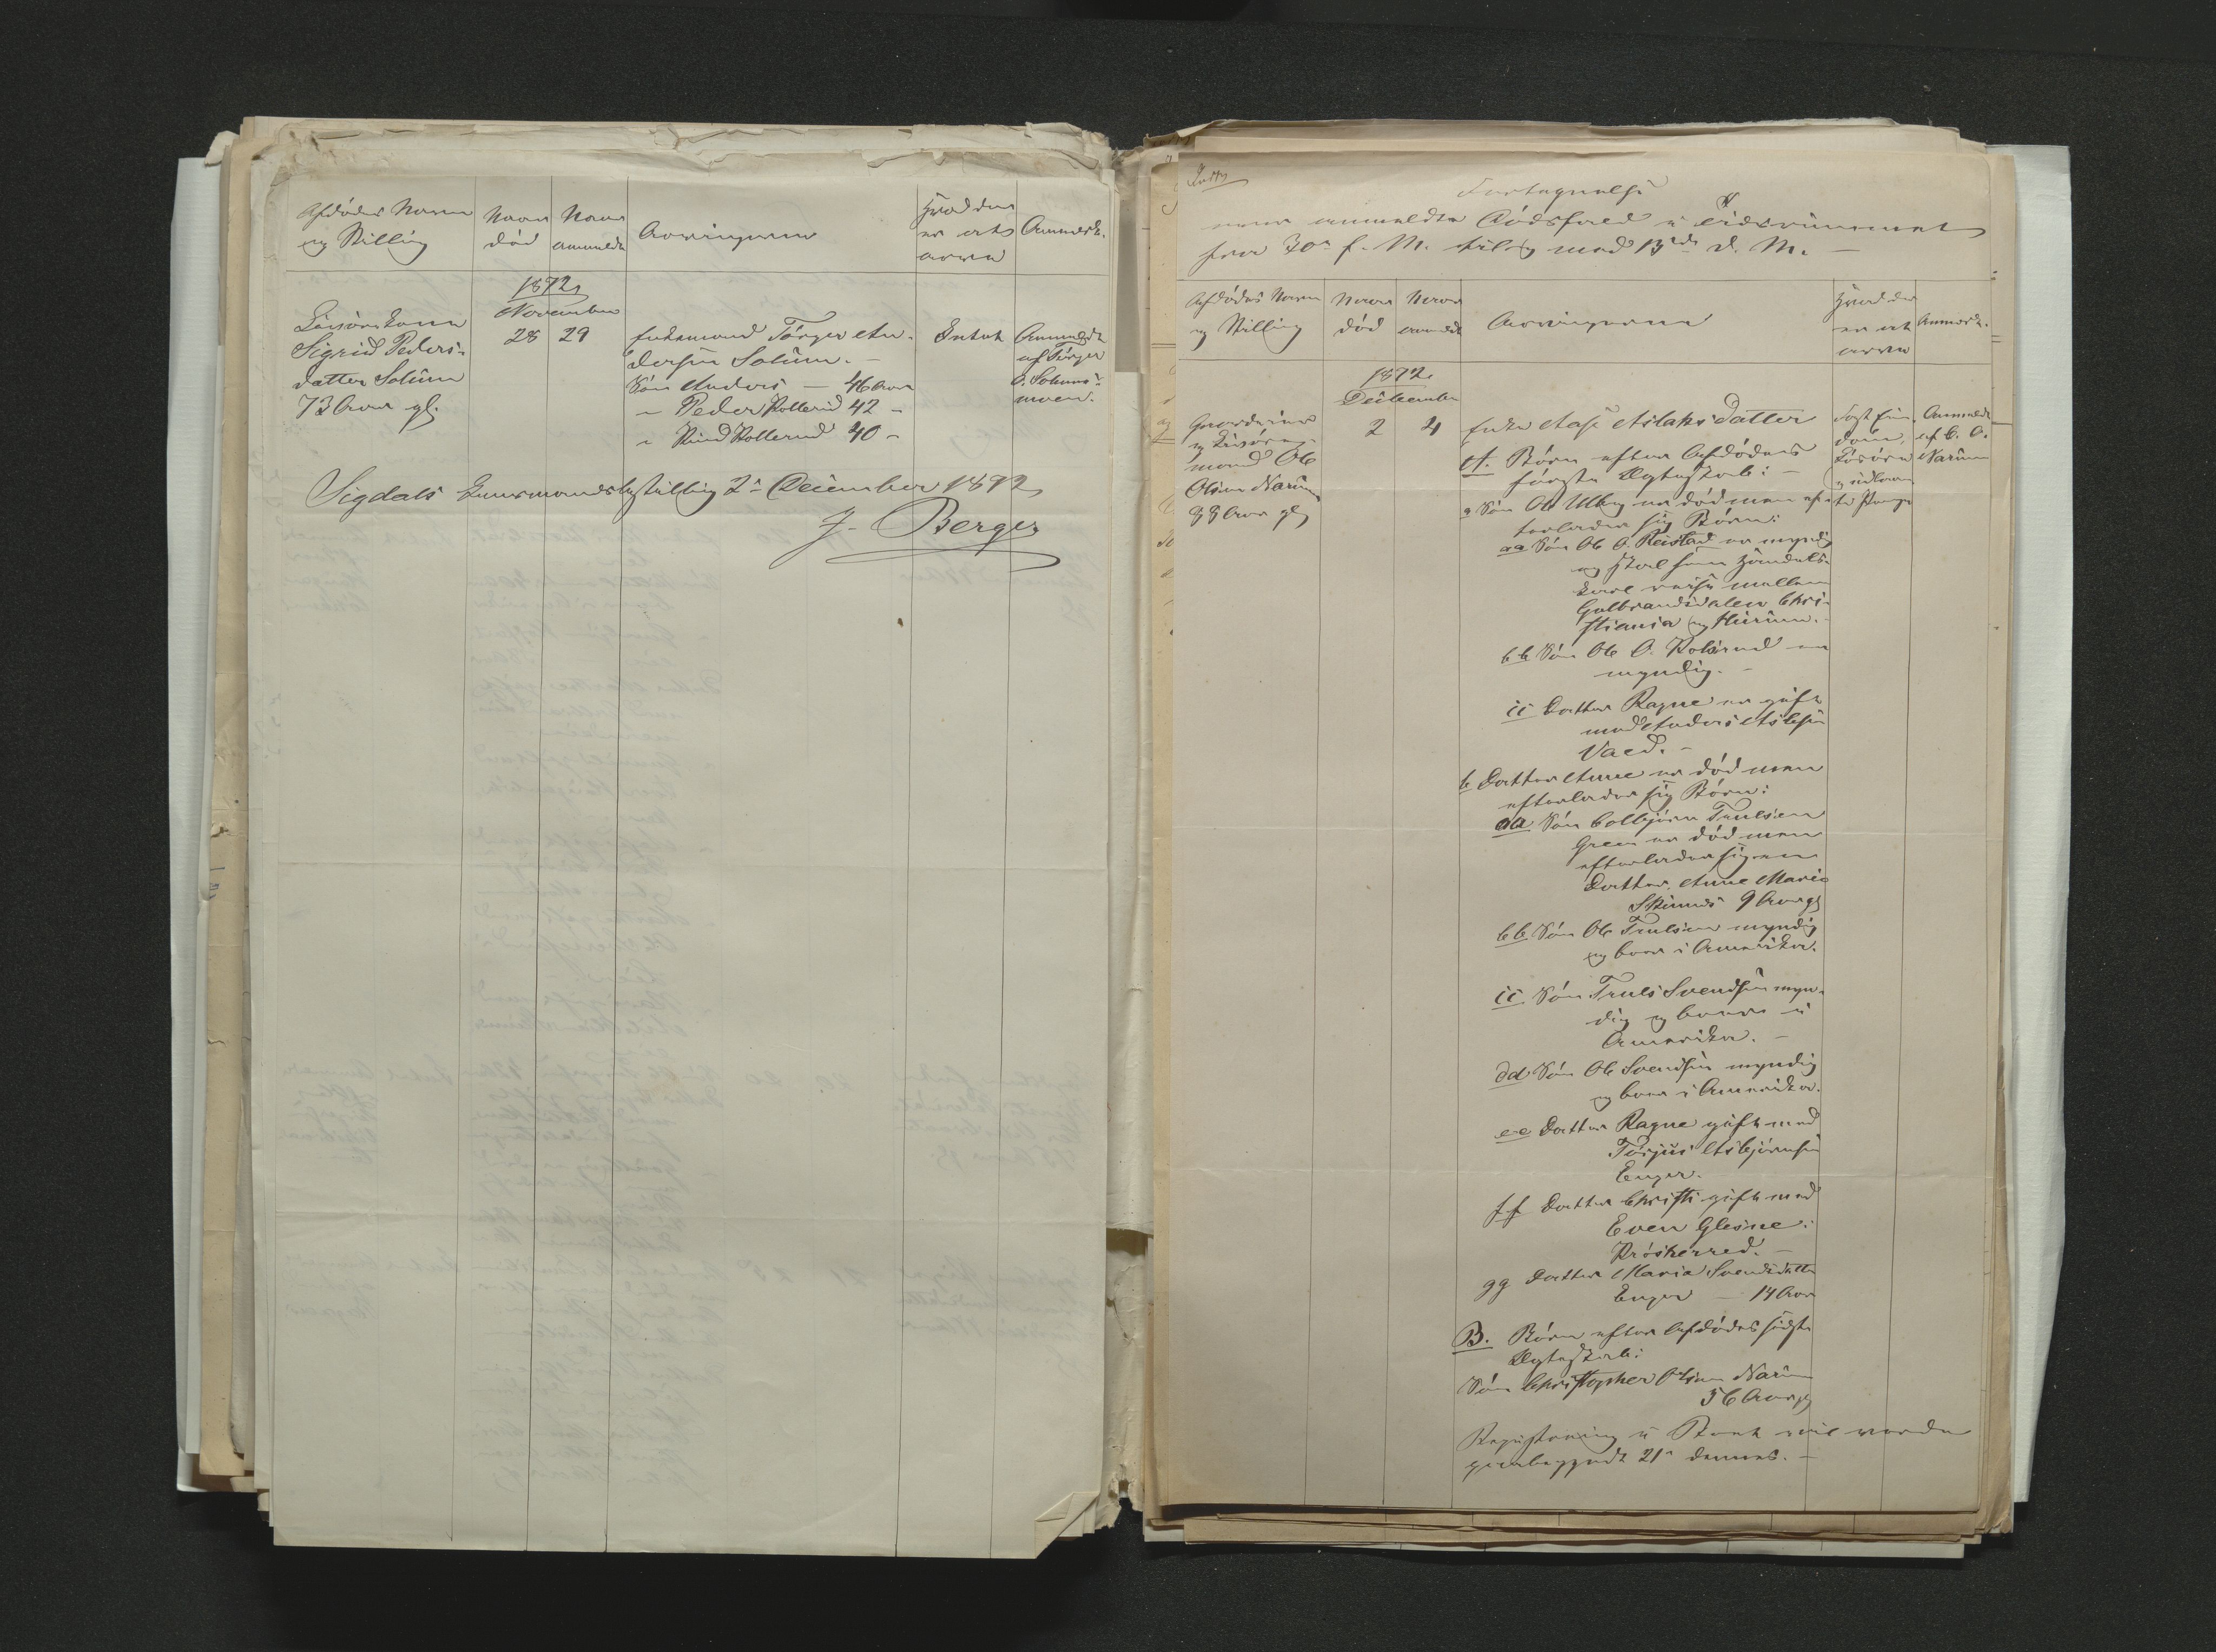 Afdødes Navn
og Stilling
Naar
død
Naar
anmeldt
Arvingerne
Hvad der
er at
arve
Anmærk.
1872
November
Løsørekone
Sigrid Peders-
datter Solum
73 Aar gl.
28 29
Enkemand Torger An-
dersen Solum. -
Søn Anders - 46 Aar
" Peder Kollerud 42 -
" Knud Kollerud 40 -
Intet
Anmeldt
af Torger
A. Solums-
moen.
Sigdals Lensmandsbestilling 2den December 1872
J. Berger
Fortegnelse
over anmeldte Dødsfald i Tidsrummet
fra 30te f. M. til og med 13de d. M. -
Afdødes Navn
og Stilling
Naar
død
Naar
anmeldt
Arvingerne
Hvad der
er at
arve
Anmærk.
1872
December
Gaardeier
og Løsøre-
mand Ole
Olsen Narum
88 Aar gl
2 4
Enke Aase Aslaksdatter
A. Børn efter Afdødes
første Ægteskab: -
a Søn Ole Ulby er død men ef-
terlader sig Børn:
aa Søn Ole O. Reistad er myndig
og skal som Handels-
karl reise mellem
Gulbrandsdalen Chri-
stiania og Hurum. -
bb Søn Ole O. Kolsrud er
myndig. -
cc Datter Ragne er gift
med Anders Asle­sen
Vaed. -
b Datter Anne er død men
efterlader sig Børn:
aa Søn Colbjørn Trulsen
Green er død men
efterlader sig en
Datter, Anne Marie
Skinnes 9 Aar gl
bb Søn Ole Trulsen myndig
og boer i Amerika.
cc Søn Truls Svendsen myn-
dig og boer i
Amerika. -
dd Søn Ole Svendsen myndig
og boer i Amerika.
ee Datter Ragne gift med
Torjus Asbjørnsen
Enger.
ff Datter Christi gift med
Even Glesne i
Krødsherred. -
gg Datter Maria Svendsdatter
Enger - 14 Aar
B. Børn efter Afdødes sidste
Ægteskab:
Søn Christopher Olsen Narum
36 Aar gl
Fast Eien-
dom,
Løsøre
og udlaan-
te Penge
Anmeldt
af C. O.
Narum
Registrering i Boet vil vorde
paabegyndt 21de dennes. -